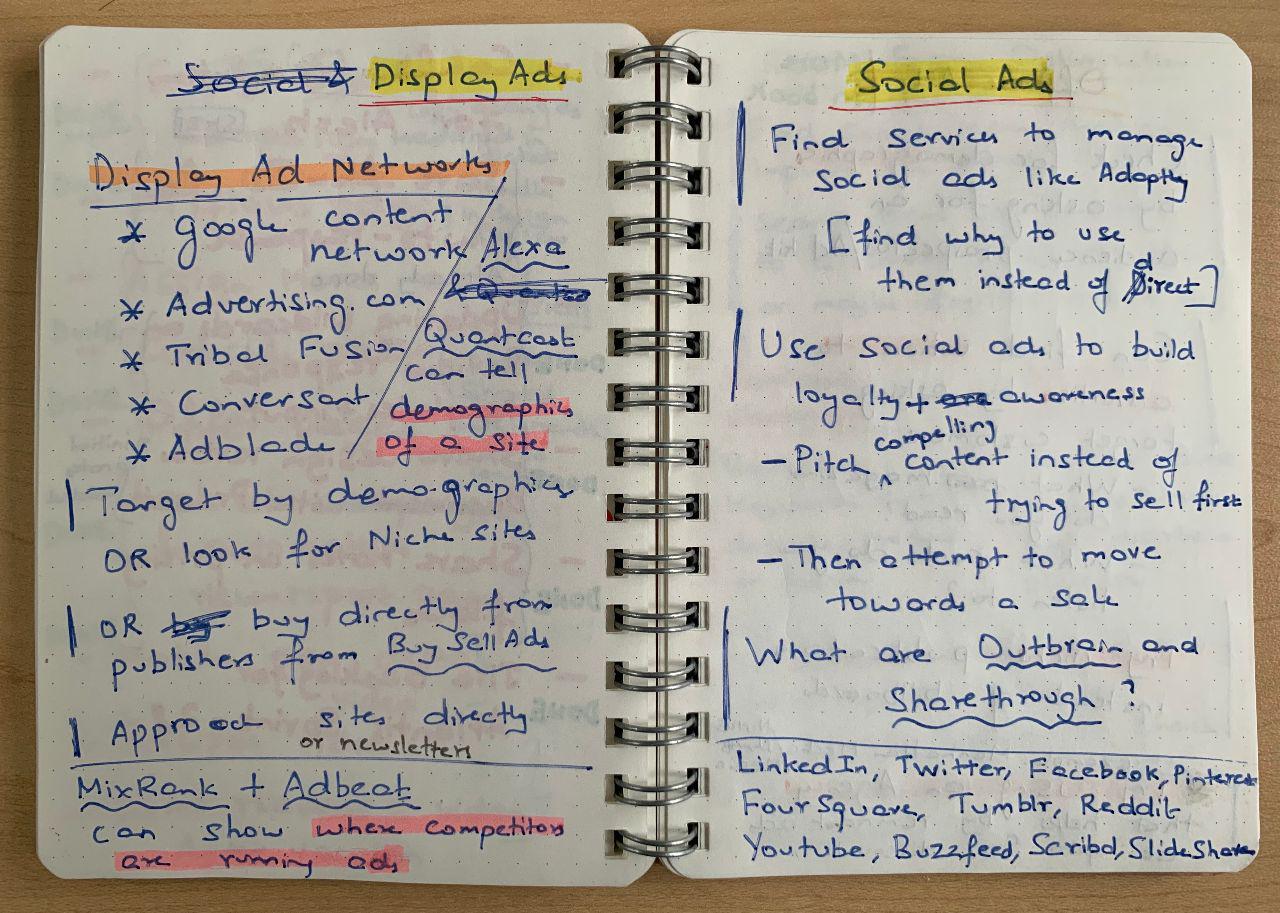 Social & Display Ads
Display Ad Networks
* Google content
network
* Advertising.com
* Tribal Fusion
* Conversant
* Adblade
Alexa
& Quantca
Quantcast
can tell
demographics
of a site
Target by demographics
OR look for Niche sites
OR by buy directly from
publishers from Buy Sell Ads
Approach sites directly
or newsletters
MixRank + Adbeat
can show where competitors
are running ads
Social Ads
Find services to manage
social ads like Adaptly
[find why to use
them instead of direct]
Use social ads to build
loyalty + awareness
compelling
- Pitch ^ content instead of
trying to sell first
- Then attempt to move
towards a sale
What are Outbrain and
Sharethrough?
LinkedIn, Twitter, Facebook, Pinterest
FourSquare, Tumblr, Reddit
Youtube, Buzzfeed, Scribd, SlideShare